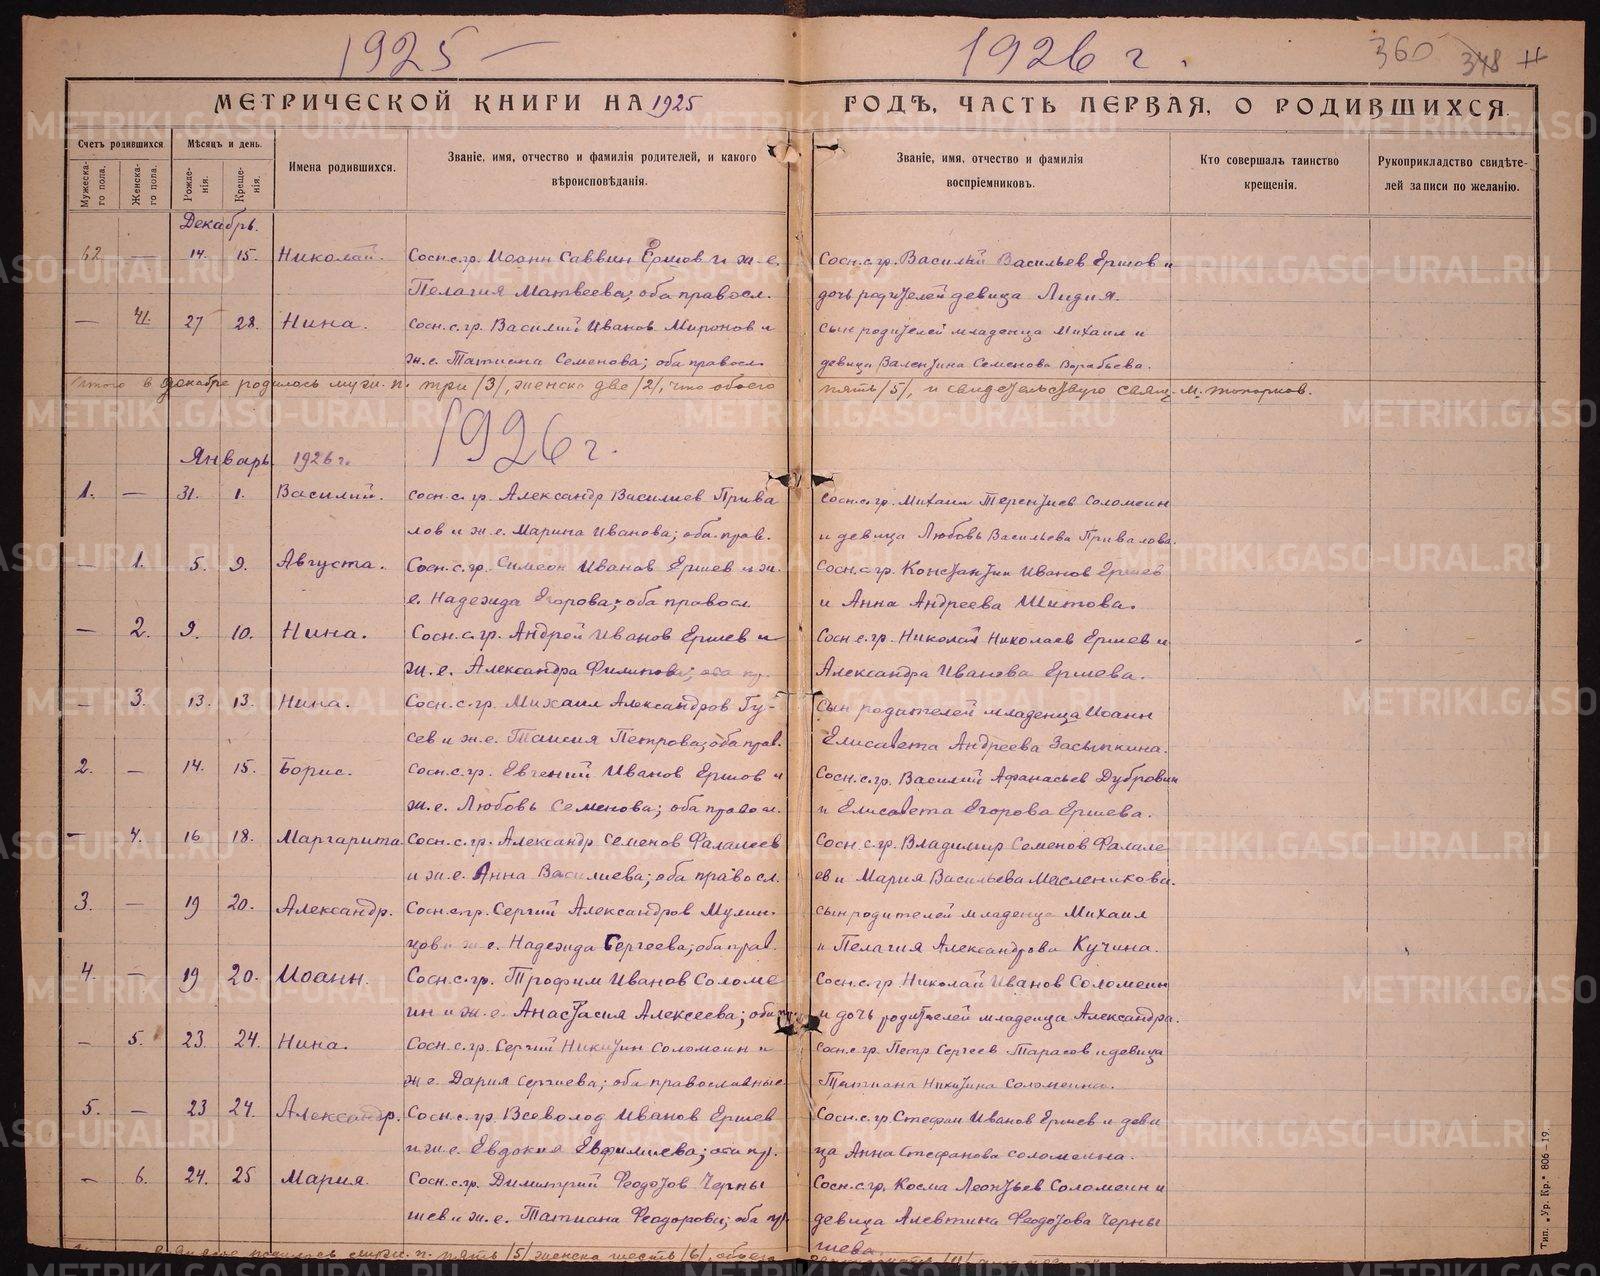 1925 — 1926 г. 360 348
МЕТРИЧЕСКОЙ КНИГИ НА 1925 ГОДЪ, ЧАСТЬ ПЕРВАЯ, О РОДИВШИХСЯ.
Счетъ родившихся. Мѣсяцъ и день. Имена родившихся. Званіе, имя, отчество и фамилія родителей, и какого вѣроисповѣданія. Званіе, имя, отчество и фамилія воспріемниковъ. Кто совершалъ таинство крещенія. Рукоприкладство свидѣтелей записи по желанію.
Мужескаго пола. Женскаго пола. Рожденія. Крещенія.
Декабрь.
62 — 14. 15. Николай. Сосн.с.гр. Иоанн Саввин Ершов и ж.е. Сосн.с.гр. Василий Васильев Ершов и
Пелагия Матвеева; оба правосл. дочь родителей девица Лидия.
— 41. 27 28. Нина. Сосн.с.гр. Василий Иванов Миронов и сын родителей младенца Михаил и
ж.е. Татиана Семенова; оба правосл. девица Валентина Семенова Воробьева.
Итого в декабре родилось муж. п. три /3/, женска две /2/, что обоего пять /5/, и свидетельствую свящ. М. Топорков.
1926 г.
Январь 1926 г.
1. — 31. 1. Василий. Сосн.с.гр. Александр Василиев Прива Сосн.с.гр. Михаил Терентиев Соломеин
лов и ж.е. Марина Иванова; оба прав. и девица Любовь Васильева Привалова.
— 1. 5. 9. Августа. Сосн.с.гр. Симеон Иванов Ершев и ж. Сосн.с.гр. Константин Иванов Ершев
е. Надежда Егорова; оба правосл. и Анна Андреева Шитова.
— 2. 9. 10. Нина. Сосн.с.гр. Андрей Иванов Ершев и Сосн.с.гр. Николай Николаев Ершев и
ж.е. Александра Филипова; оба пр. Александра Иванова Ершева.
— 3. 13. 13. Нина. Сосн.с.гр. Михаил Александров Гу- Сын родителей младенца Иоанн
сев и ж.е. Таисия Петрова; оба прав. Елисавета Андреева Засыпкина.
2. — 14. 15. Борис. Сосн.с.гр. Евгений Иванов Ершов и Сосн.с.гр. Василий Афанасьев Дубровин
ж.е. Любовь Семенова; оба правосл. и Елисавета Егорова Ершева.
— 4. 16 18. Маргарита Сосн.с.гр. Александр Семенов Фалалеев Сосн.с.гр. Владимир Семенов Фалале
и ж.е. Анна Василиева; оба правосл. ев и Мария Васильева Масленикова.
3. — 19 20. Александр. Сосн.с.гр. Сергий Александров Мулин- сын родителей младенца Михаил
цов и ж.е. Надежда Сергеева; оба прав. и Пелагия Александрова Кучина.
4. — 19 20. Иоанн. Сосн.с.гр. Трофим Иванов Соломе Сосн.с.гр Николай Иванов Соломеин
ин и ж.е. Анастасия Алексеева; оба и дочь родителей младенца Александра.
— 5. 23. 24. Нина. Сосн.с.гр. Сергий Никитин Соломеин и Сосн.с.гр. Петр Сергеев Тарасов и девица
ж.е. Дария Сергиева; оба православные Татиана Никитина Соломеина.
5. — 23 24. Александр. Сосн.с.гр. Всеволод Иванов Ершев Сосн.с.гр. Стефан Иванов Ершев и деви
и ж.е. Евдокия Евфимиева; оба пр. ца Анна Стефанова Соломеина.
— 6. 24. 25 Мария. Сосн.с.гр. Димитрий Феодотов Черны Сосн.с.гр. Косма Леонтьев Соломеин и
шев и ж.е. Татиана Феодорова; оба пр. девица Алевтина Феодотова Черны
шева.
родилось муж. п. пять /5/ женска шесть /6/, обоего
Тип. „Ур. Кр.“ 806—19.
METRIKI.GASO-URAL.RU